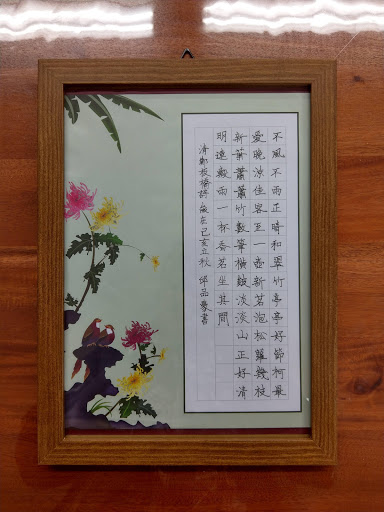 不風不雨正晴和翠竹亭亭好節柯最
愛晚涼佳客至一壺新茗泡松蘿幾枝
新葉蕭蕭竹數筆橫皴淡淡山正好清
明連穀雨一杯香茗坐其間
清鄭板橋詩 歲在己亥立秋 品豪書